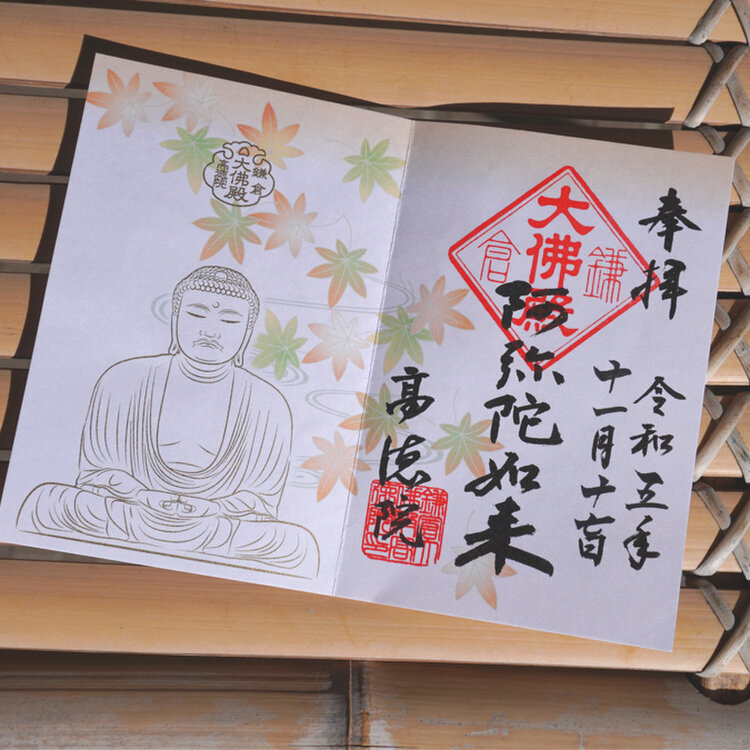 奉拝
令和五年
十一月十
鎌倉
大佛殿
阿弥陀如来
高徳院
鎌倉
大佛殿
高徳院